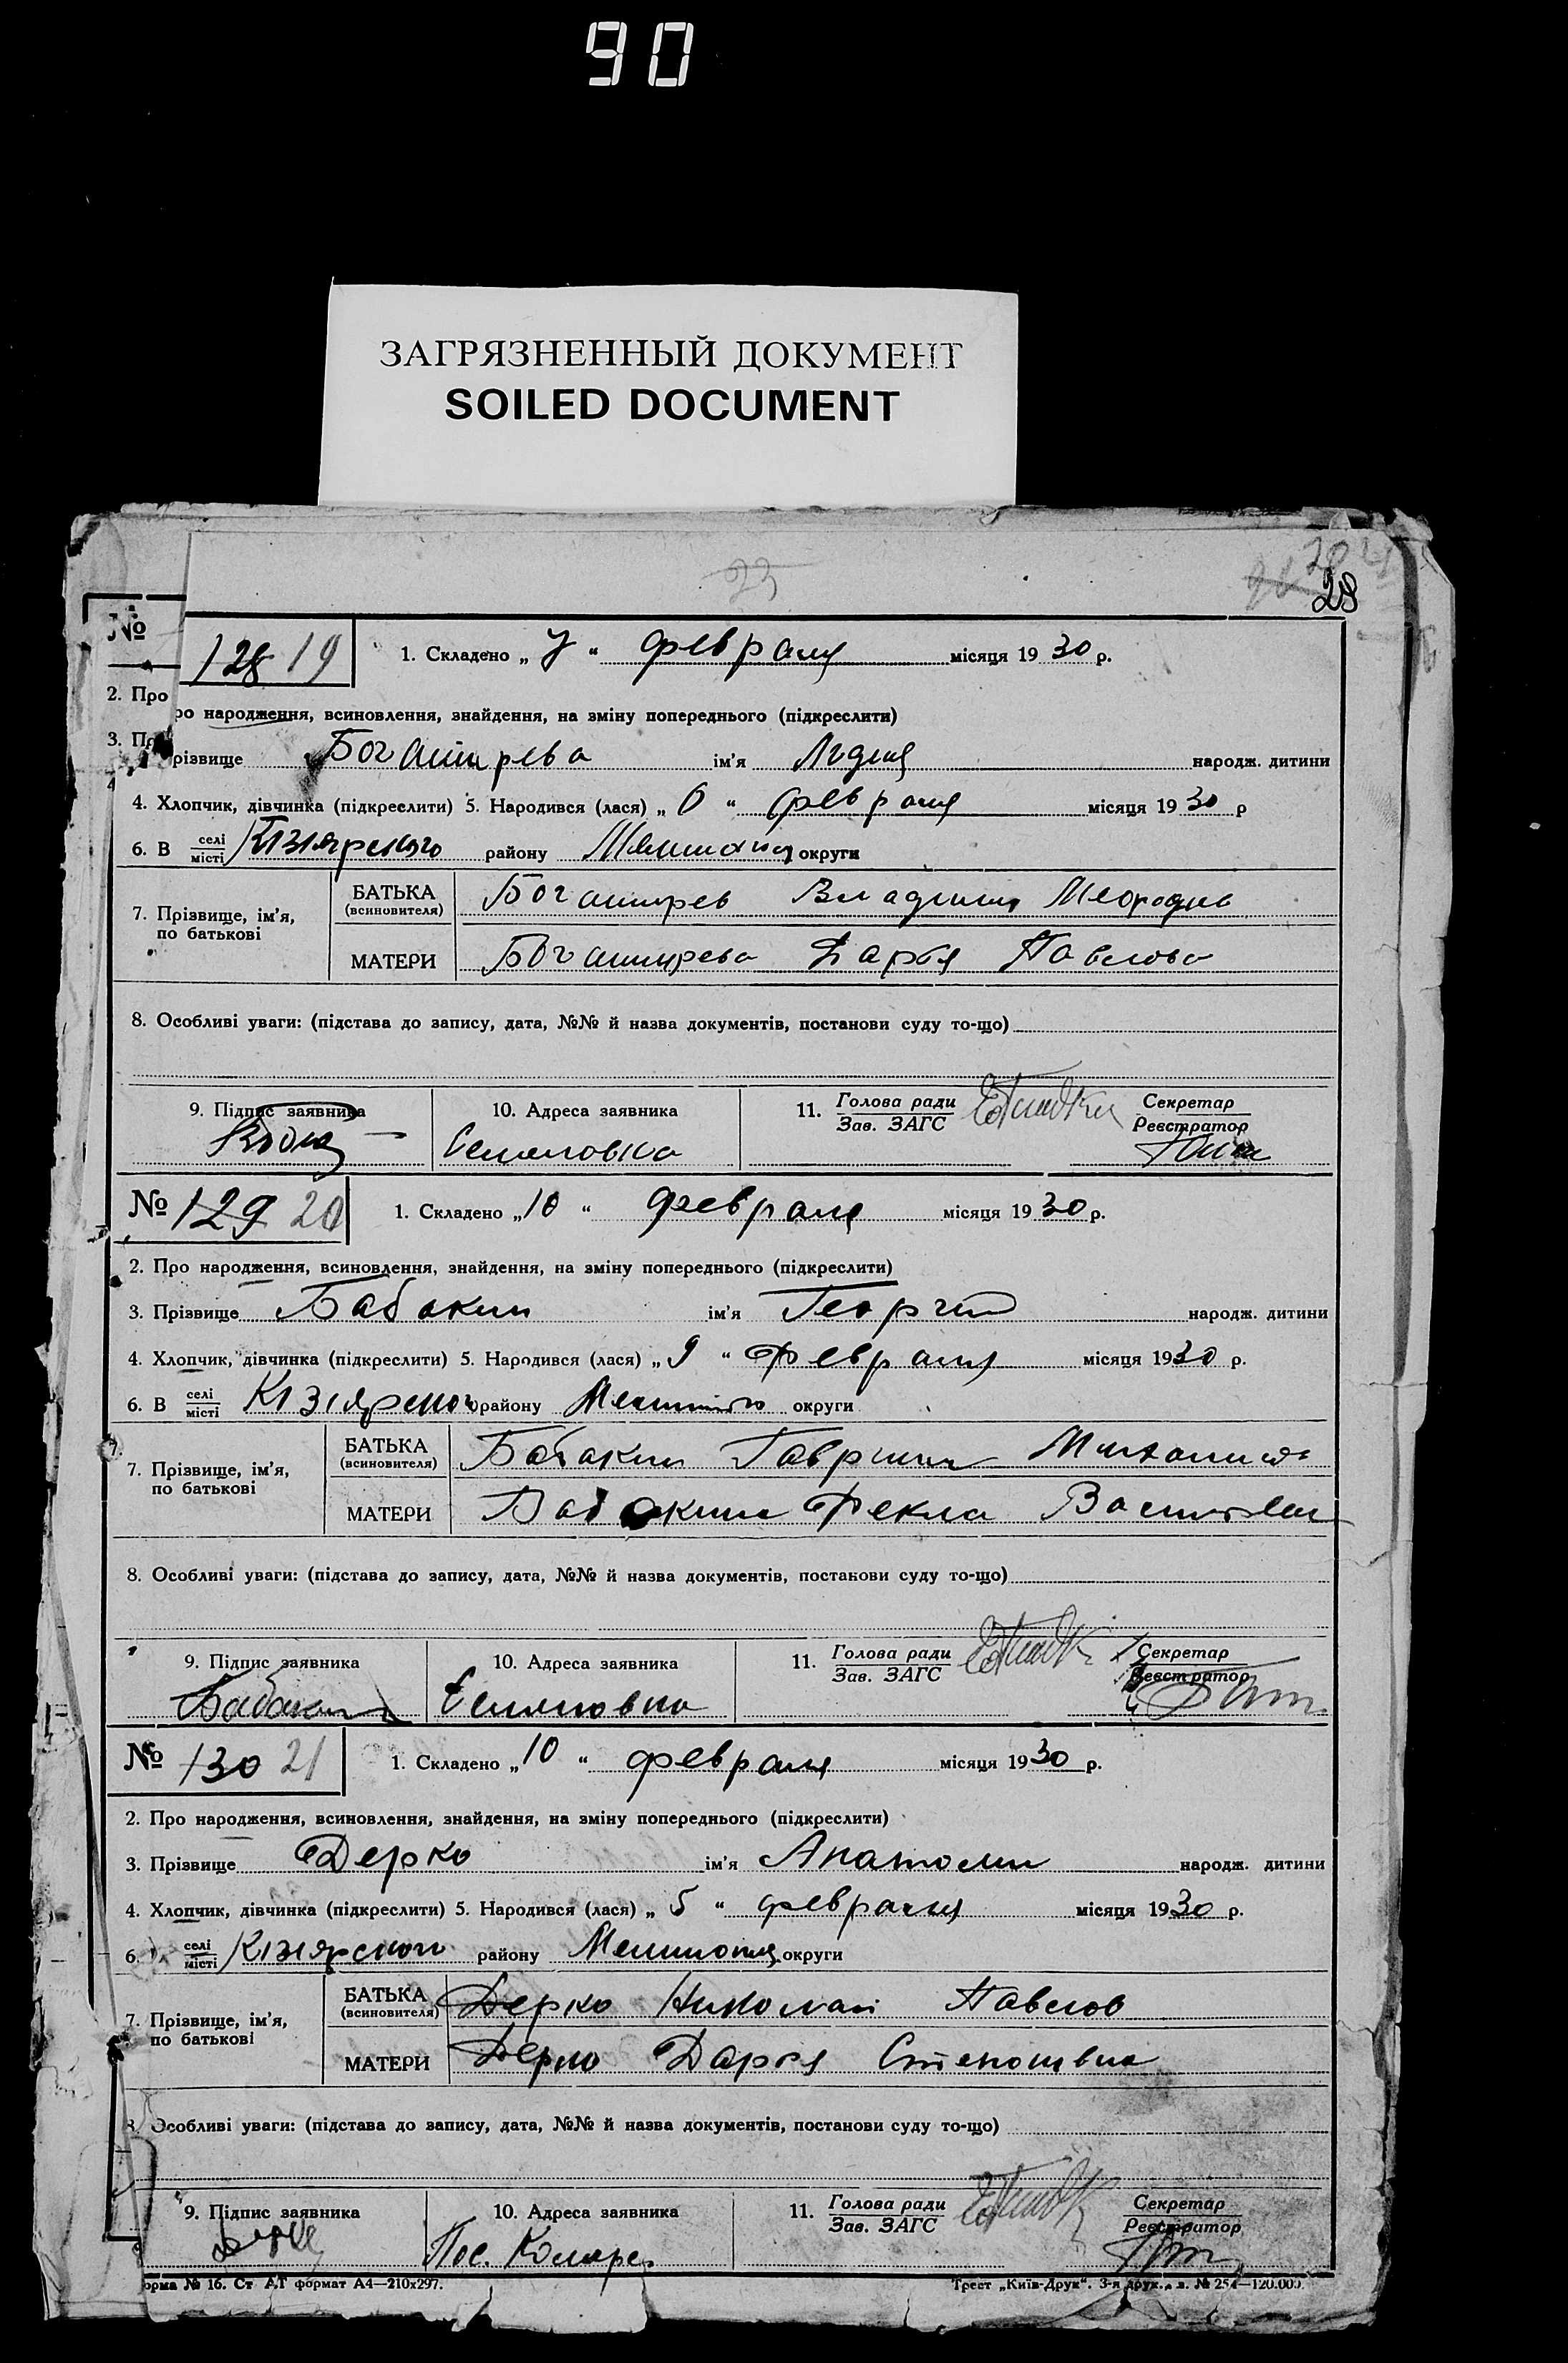 90
ЗАГРЯЗНЕННЫЙ ДОКУМЕНТ
SOILED DOCUMENT
23
28
№
128 19
1. Складено „ 7 “ февраля місяця 19 30 р.
2. Про
ро народження, всиновлення, знайдення, на зміну попереднього (підкреслити)
3. Пр
різвище Богатирева ім'я Лидия народж. дитини
4. Хлопчик, дівчинка (підкреслити) 5. Народився (лася) „ 6 “ февраля місяця 19 30 р
6. В селі/місті Кізіярского району округи
7. Прізвище, ім'я, по батькові
БАТЬКА (всиновителя) Богатирев Владимир
МАТЕРИ Богатирева Дарья Павлова
8. Особливі уваги: (підстава до запису, дата, №№ й назва документів, постанови суду то-що)
9. Підпис заявника
10. Адреса заявника Семеновка
11. Голова ради/Зав. ЗАГС Секретар/Реєстратор
№ 129 20
1. Складено „ 10 “ февраля місяця 19 30 р.
2. Про народження, всиновлення, знайдення, на зміну попереднього (підкреслити)
3. Прізвище Бабакин ім'я Георгий народж. дитини
4. Хлопчик, дівчинка (підкреслити) 5. Народився (лася) „ 9 “ Февраля місяця 19 30 р.
6. В селі/місті Кізіярского району округи
7.
7. Прізвище, ім'я, по батькові
БАТЬКА (всиновителя) Бабакин Гавриил
МАТЕРИ Бабакина Фекла
8. Особливі уваги: (підстава до запису, дата, №№ й назва документів, постанови суду то-що)
9. Підпис заявника Бабакин
10. Адреса заявника Семеновка
11. Голова ради/Зав. ЗАГС Секретар/Реєстратор
№ 130 21
1. Складено „ 10 “ февраля місяця 19 30 р.
2. Про народження, всиновлення, знайдення, на зміну попереднього (підкреслити)
3. Прізвище Дерко ім'я Анатоли народж. дитини
4. Хлопчик, дівчинка (підкреслити) 5. Народився (лася) „ 5 “ февраля місяця 19 30 р.
6. селі/місті Кізіярского району округи
7. Прізвище, ім'я, по батькові
БАТЬКА (всиновителя) Дерко Николай Павлов
МАТЕРИ Дерко Дарья
8. Особливі уваги: (підстава до запису, дата, №№ й назва документів, постанови суду то-що)
9. Підпис заявника
10. Адреса заявника Пос.
11. Голова ради/Зав. ЗАГС Секретар/Реєстратор
орма № 16. Ст АТ формат А4—210х297.
Трест „Київ-Друк“. 3-я друк., з. № 254—120.000.